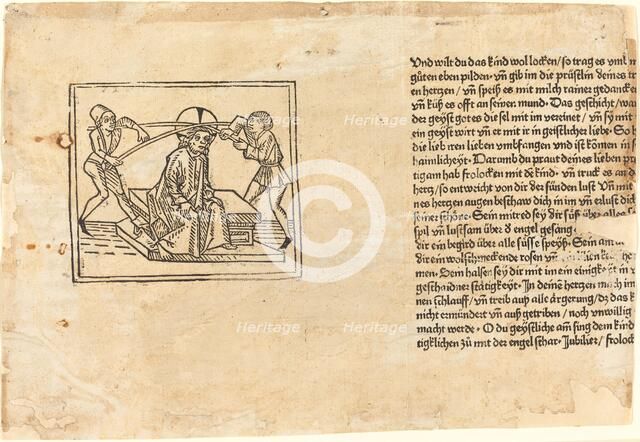 Und wilt du das kind wol locken/so trag es vmb m
gůten eben pilden· vn̄ gib im die prüstlin deines
en hertzen/ vn̄ speiß es mit milch rainer gedancke
vn̄ küß es offt an seinen mund· Das geschicht/wa
der geyst gotes die sel mit im vereinet/vn̄ sy mit
ein geyst wirt vn̄ et mit ir in geistlicher liebe· So
die lieb iren lieben vmbfangen vnd ist können in s
haimlicheyt· Darumb du praut deines lieben
tigam hab frolocken mit dē kind· vn̄ truck es an d
hertz/so entweicht von dir der sünden lust Vn̄ mit
nes hertzen augen beschaw dich in im vn̄ erlust dic
seiner schöne· Sein mitred sey dir süß über alles
spil vn̄ lustsam über d engel gesang·
dir ein begird über alle süsse speyß· Sein
dir ein wolschmeckende rosen vn̄
men· Sein halsen sey dir mit im ein einigkeyt in
geschaidner stätigkeyt· In deinē hertzen mach im
nen schlauff/ vn̄ treib auß alle ärgerung/dz das k
nicht ermündert vn̄ auß getriben / noch vnwillig
macht werde · O du geystliche am̄ sing dem kind
tigklichen zů mit der engel schar· Jubilier/ frolock
Heritage
Heritage
Heritage
Heritage
Heritage
Heritage